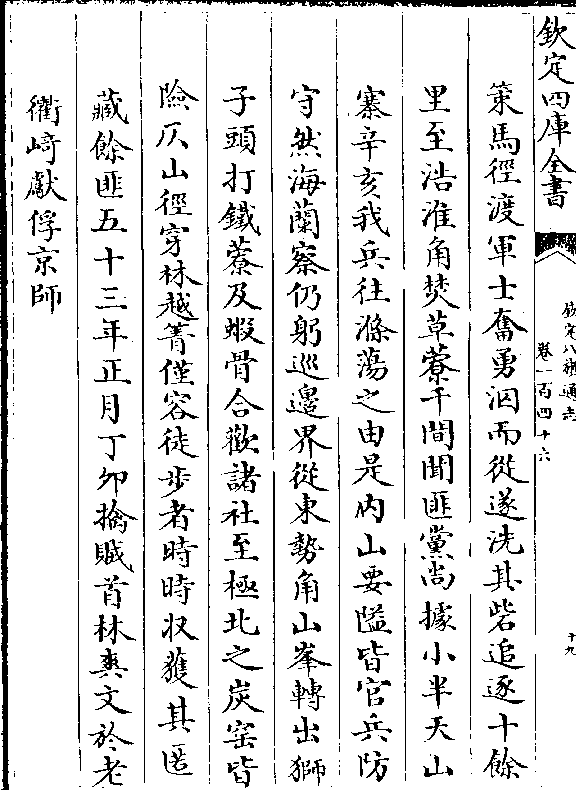 欽定四庫全書
欽定八旗通志
卷一百四十六
十九
策馬徑渡軍士奮勇泅而從遂洗其砦追逐十餘
里至浩淮角焚草藔千間聞匪黨尚據小半天山
寨辛亥我兵往滌蕩之由是内山要隘皆官兵防
守然海蘭察仍躬巡邊界從東勢角山峯轉出獅
子頭打鐵藔及蝦骨合歡諸社至極北之炭窑皆
險仄山徑穿林越箐僅容徒步者時時收獲其匿
藏餘匪五十三年正月丁卯擒賊首林爽文於老
衢崎獻俘京師